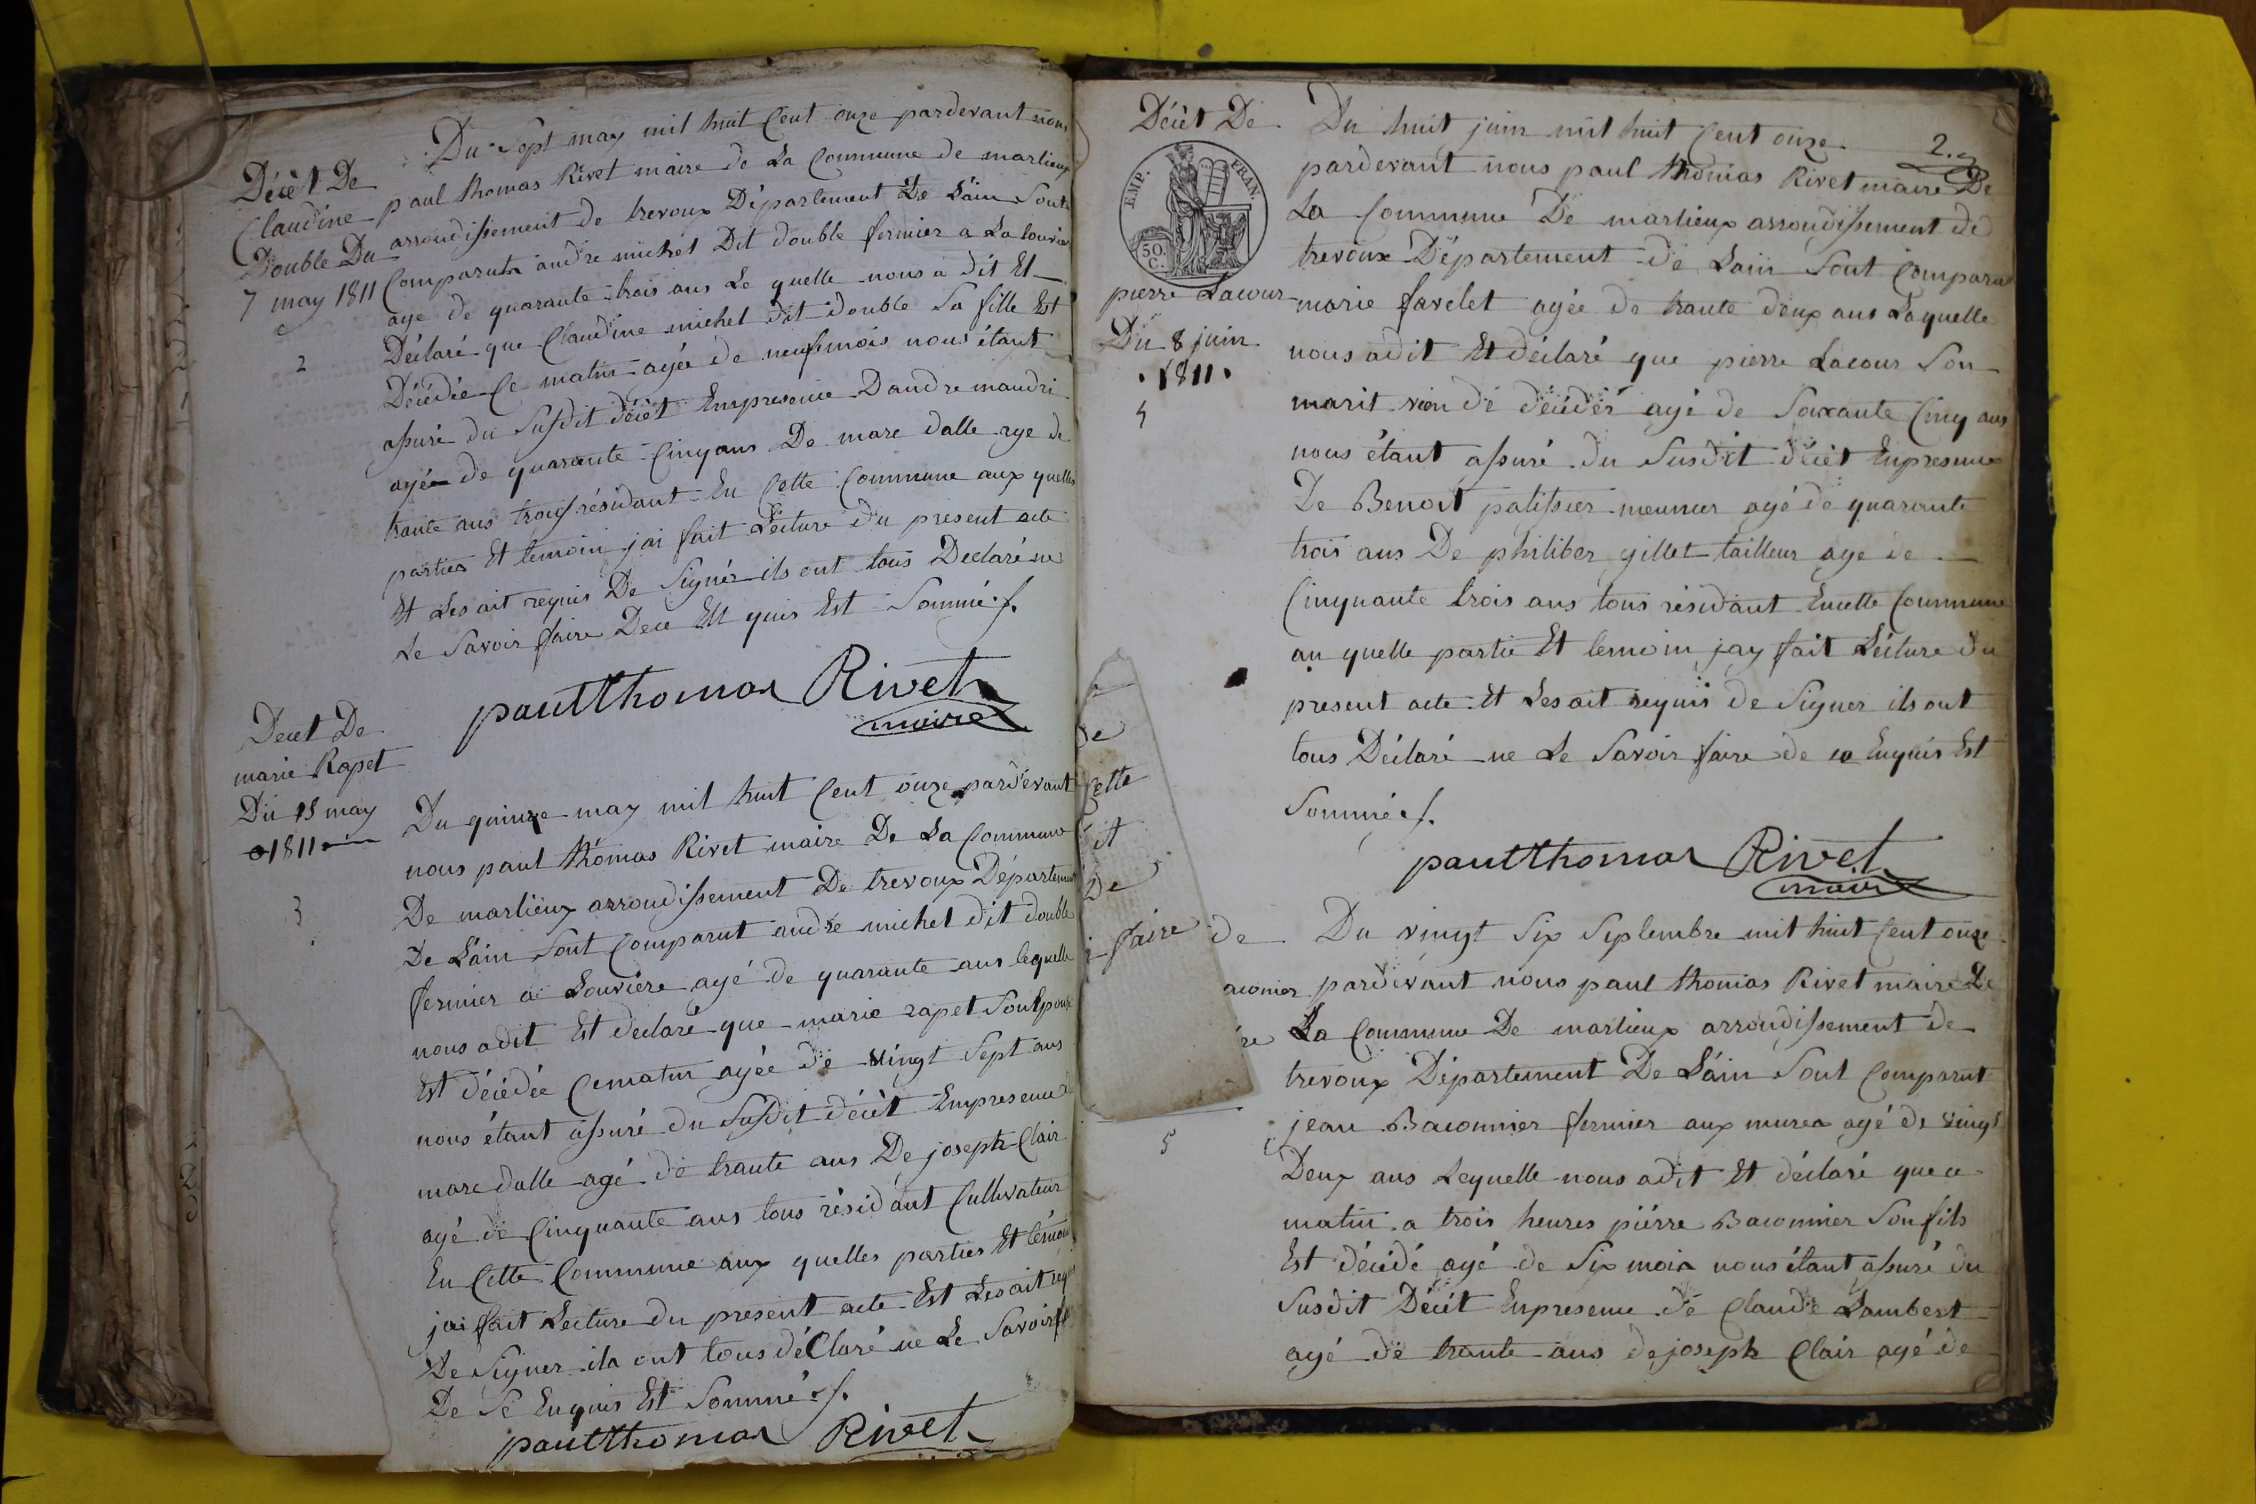 Décèt De
Claudine
Double Du
7 may 1811
2
Du Sept may mil huit Cent onze pardevant nous
paul thomas Rivet maire de La Commune de marlieux
arrondissement de trevoux Département De Lain Sont
Comparut andre michel Dit double fermier a La louvier
age de quarante trois ans Le quelle nous a dit Et
Déclaré que Claudine michel dit double Sa fille Est
Décédée Ce matin agée de neuf mois nous étant
assuré du Susdit décèt Enpresence Dandre maudri
agée de quarante Cinq ans De marc dalle age de
trante ans trois résidant En Cette Commune aux quelles
parties Et temoin jai fait Lecture du present acte
Et Les ait requis De Signér ils ont tous Declaré ne
Le Savoir faire Dece Est quis Est Sommé ./.
paulthomas Rivet
maire
Decet De
marie Rapet
Du 15 may
1811
3
Du quinze may mil huit Cent onze pardevant
nous paul thomas Rivet maire De La Commune
De marlieux arrondissement De trevoux Département
De Lain Sont Comparut andre michel dit double
fermier a Louviere agé de quarante ans lequelle
nous adit Est declaré que marie rapet Son Epouze
Est décédée Cematin agée de vingt Sept ans
nous étant assuré du Susdit décèt Enpresence
marc dalle agé de trante ans De joseph Clair
agé de Cinquante ans tous résidant Cultivateur
En Cette Commune aux quelles parties Et témoin
jai fait Lecture du present acte Est Les ait req
De Signer ils ont tous déClaré ne Le Savoir f
De Se Enquis Est Sommé ./.
paulthomas Rivet
de
Cette
it
De
faire
Décèt De
EMP. FRAN.
50 C.
pierre Lacour
Du 8 juin
1811
4
2.
Du huit juin mil huit Cent onze
pardevant nous paul thomas Rivet maire De
La Commune De marlieux arrondissement de
trevoux Département de Lain Sont Comparu
marie favelet agée de trante deux ans Laquelle
nous adit Et déclaré que pierre Lacour Son
marit vien de décédér agé de Soixante Cinq ans
nous étant assuré du Susdit décèt Enpresence
De Benoit palissier meunier agé de quarante
trois ans De philiber gillet tailleur age de
Cinquante trois ans tous résidant Encette Commune
au quelle partie Et temoin jay fait Lécture du
present acte Et Les ait requis de Signer ils ont
tous Déclaré ne Le Savoir faire de ce Enquis Est
Sommé ./.
paulthomas Rivet
maire
de
aconier
re
5
Du vingt Six Septembre mil huit Cent onze
pardevant nous paul thomas Rivet maire De
La Commune De marlieux arrondissement de
trevoux Département De Lain Sont Comparut
jean Baconnier fermier aux mures agé de vingt
Deux ans Lequelle nous adit Et déclaré que ce
matin a trois heures piérre Baconnier Son fils
Est décédé agé de Six mois nous étant assuré du
Susdit Décét Enpresence de Claude Lambert
agé de trante ans de joseph Clair agé de